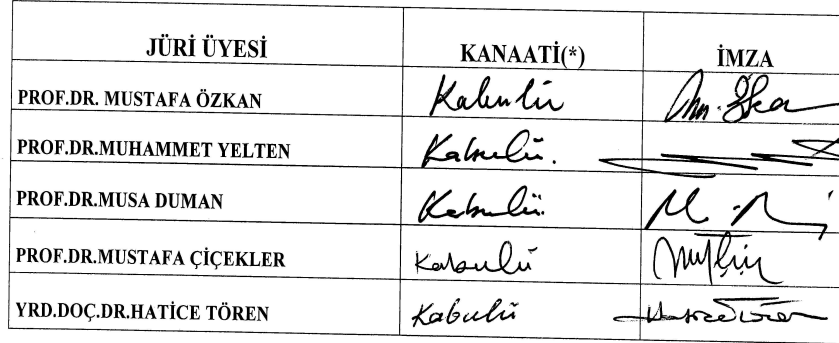 JÜRİ ÜYESİ KANAATİ(*) İMZA
PROF.DR. MUSTAFA ÖZKAN Kabulü
PROF.DR.MUHAMMET YELTEN Kabulü.
PROF.DR.MUSA DUMAN Kabulü.
PROF.DR.MUSTAFA ÇİÇEKLER Kabulü
YRD.DOÇ.DR.HATİCE TÖREN Kabulü